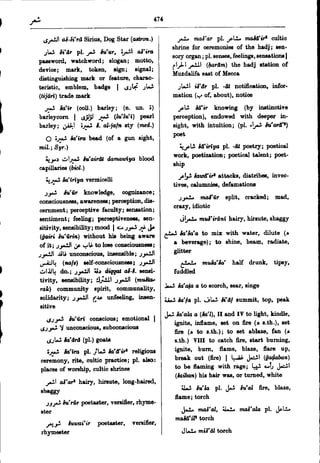 474
الشعرى aš-šiʿrā Sirius, Dog Star (astron.)
شعار šiʿār pl. شعر šuʿur, اشعرة ašʿira
password, watchword; slogan; motto,
device; mark, token, sign; signal;
distinguishing mark or feature, charac-
teristic, emblem, badge | شعار تجاري
(tijārī) trade mark
شعير šaʿīr (coll.) barley; (n. un. ة)
barleycorn | شعير لؤلؤي (luʾluʾī) pearl
barley; شعيرة الجفن š. al-jafn sty (med.)
شعيرة šaʿīra bead (of a gun sight,
mil.; Syr.)
شعيرات دموية šuʿairāt damawīya blood
capillaries (biol.)
شعيرية šaʿīrīya vermicelli
شعور šuʿūr knowledge, cognizance;
consciousness, awareness; perception, dis-
cernment; perceptive faculty; sensation;
sentiment; feeling; perceptiveness, sen-
sitivity, sensibility; mood | من غير شعور منه
(ḡairi šuʿūrin) without his being aware
of it; غاب عن شعوره to lose consciousness;
فاقد الشعور unconscious, insensible; الشعور
بالذات (nafs) self-consciousness;
do.; دقة الشعور diqqat aš-š. sensi-
tivity, sensibility; الشعور المشترك (muštar-
rak) community spirit, communality,
solidarity; عديم الشعور unfeeling, insen-
sitive
شعوري šuʿūrī conscious; emotional |
لا شعوري unconscious, subconscious
شعارى šaʿārā (pl.) goats
شعيرة šaʿīra pl. شعائر šaʿāʾir² religious
ceremony, rite, cultic practice; pl. also:
places of worship, cultic shrines
اشعر ašʿar² hairy, hirsute, long-haired,
shaggy
شعرور šuʿrūr poetaster, versifier, rhyme-
ster
شويعر šuwaiʿir poetaster, versifier,
rhymester
مشعر mašʿar pl. مشاعر mašāʿir² cultic
shrine for ceremonies of the hadj; sen-
sory organ; pl. senses, feelings, sensations |
المشعر الحرام (ḥarām) the hadj station of
Muzdalifa east of Mecca
اشعار išʿār pl. -āt notification, infor-
mation (ب of, about), notice
شاعر šāʿir knowing (by instinctive
perception), endowed with deeper in-
sight, with intuition; (pl. شعراء šuʿarāʾ²)
poet
شاعرية šāʿirīya pl. -āt poetry; poetical
work, poetization; poetical talent; poet-
ship
šawāʿir² attacks, diatribes, invec-
tives, calumnies, defamations
مشعور mašʿūr split, cracked; mad,
crazy, idiotic
mušʿirānī hairy, hirsute, shaggy
شعشع šaʿšaʿa to mix with water, dilute (ه
a beverage); to shine, beam, radiate,
glitter
مشعشع mušaʿšaʿ half drunk, tipsy,
fuddled
شعط šaʿaṭa to scorch, sear, singe
شعفة šaʿfa pl. شعاف šiʿāf summit, top, peak
شعل šaʿala a (šaʿl), II and IV to light, kindle,
ignite, inflame, set on fire (ه s.th.), set
fire (ه to s.th.); to set ablaze, fan (ه
s.th.) VIII to catch fire, start burning,
ignite, burn, flame, blaze, flare up,
break out (fire) | اشتعل غضبا (ḡaḍaban)
to be flaming with rage; اشتعل رأسه شيبا
(šaiban) his hair was, or turned, white
شعلة šuʿla pl. شعل šuʿal fire, blaze,
flame; torch
مشعل mašʿal, مشعلة mašʿala pl. مشاعل
mašāʿil² torch
مشعال mišʿāl torch